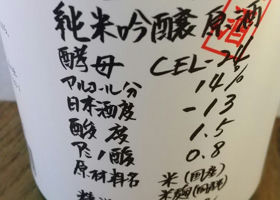 純米吟醸 原酒
酵母 CEL-24
アルコール分 14%
日本酒度 -13
酸度 1.5
アミノ酸 0.8
原材料名 米(国産)
米麹(国産米)